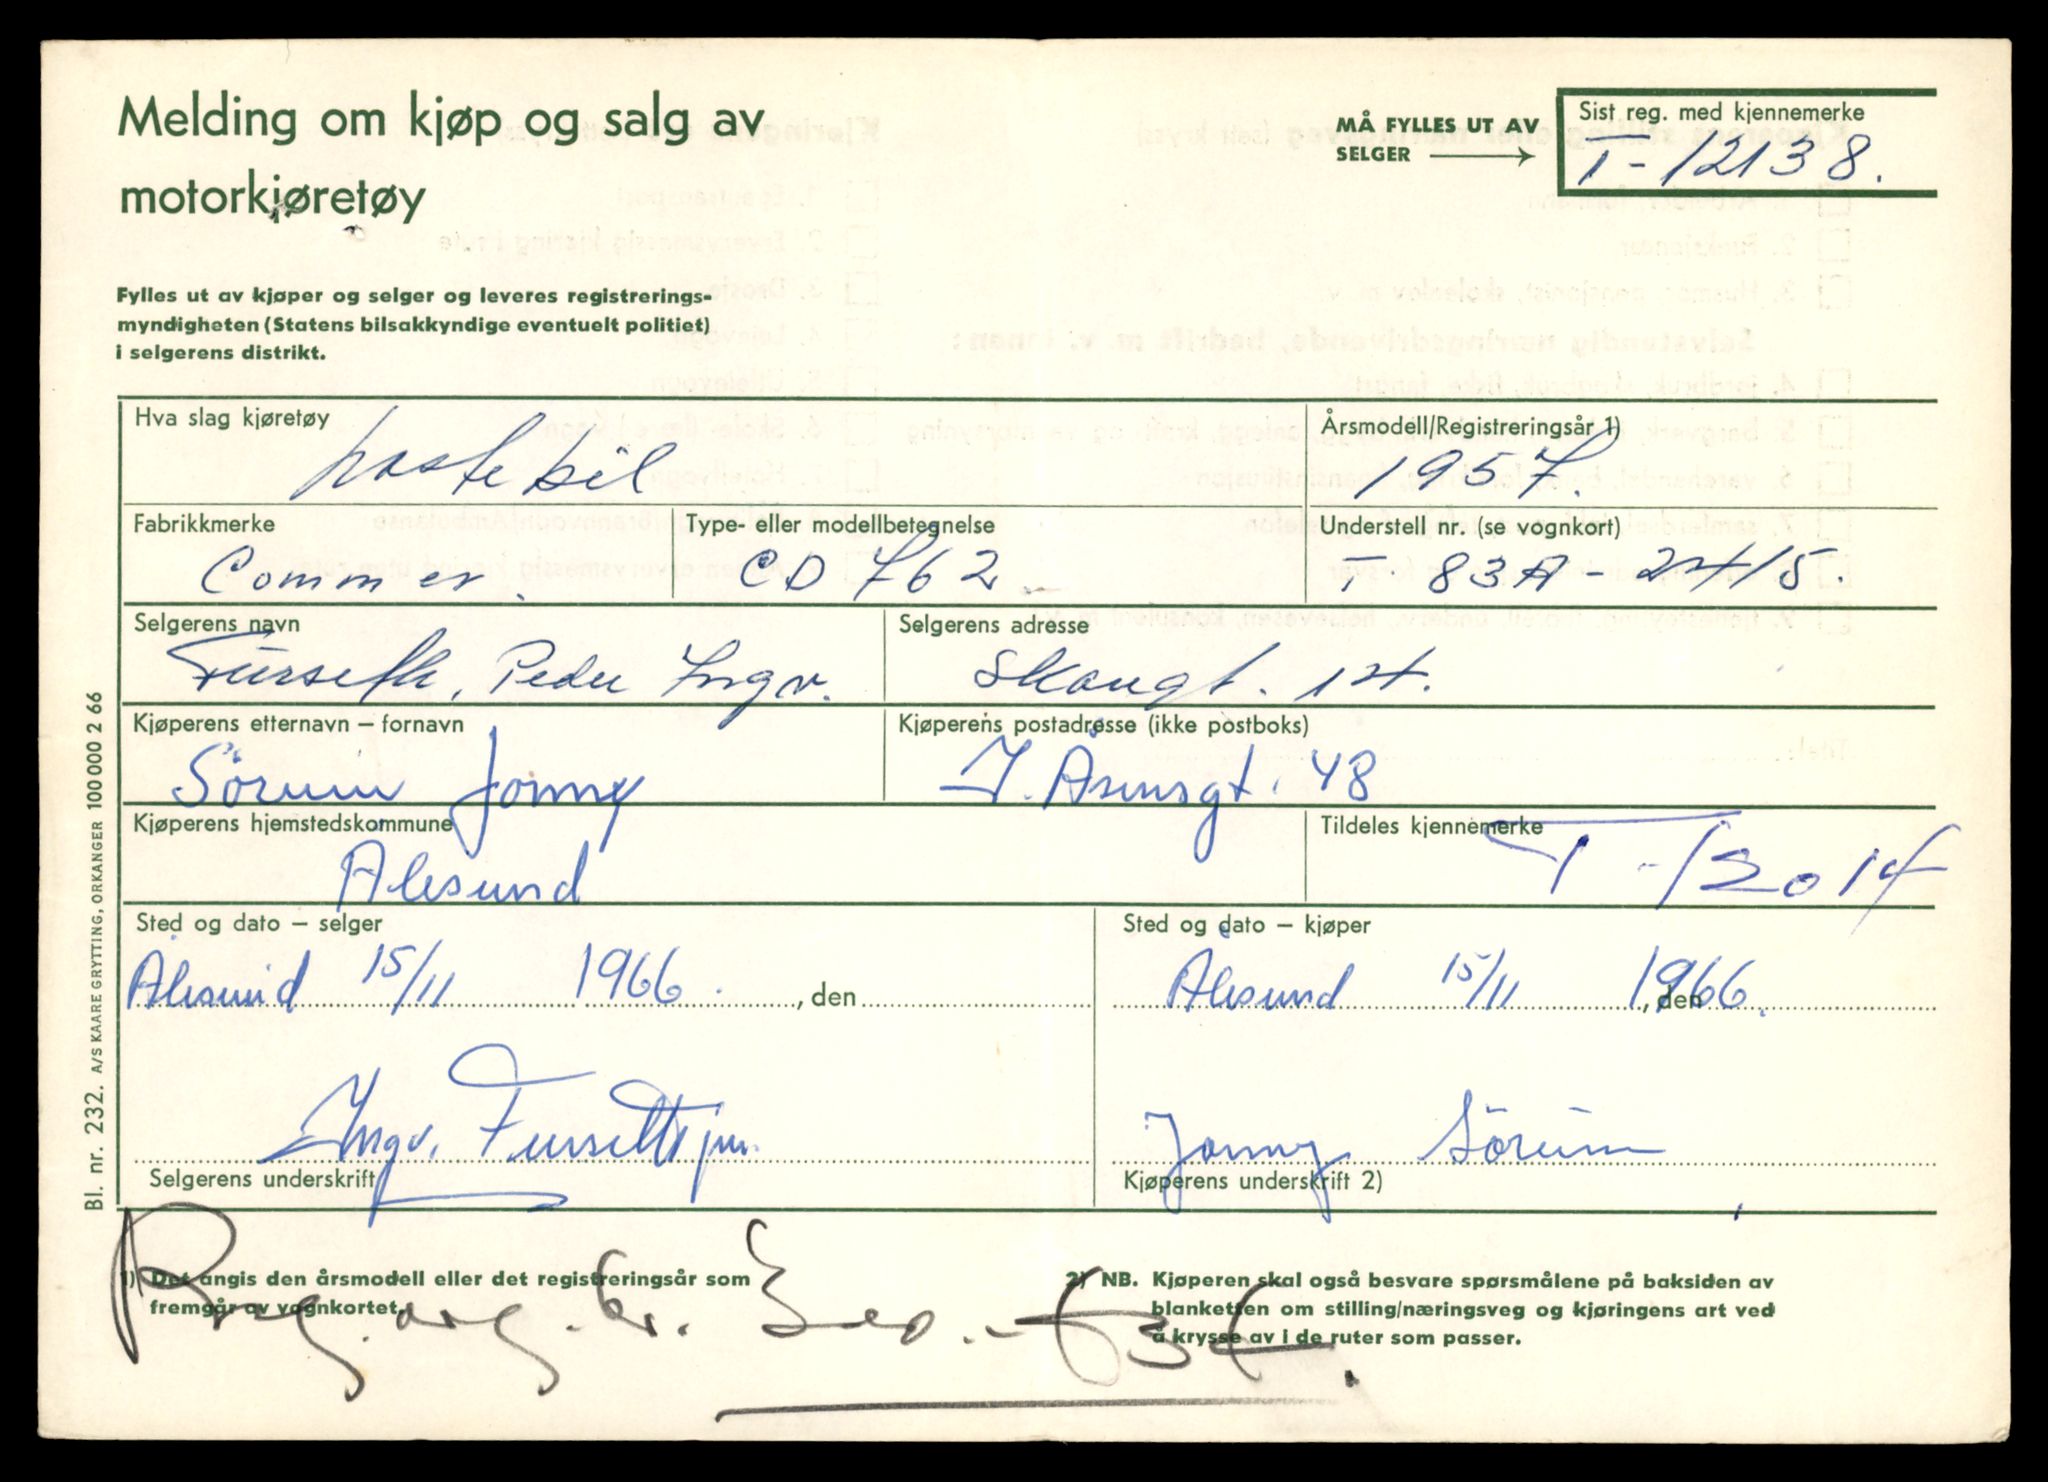 Melding om kjøp og salg av
motorkjøretøy
MÅ FYLLES UT AV
SELGER
Sist reg. med kjennemerke
T-12138.
Fylles ut av kjøper og selger og leveres registrerings-
myndigheten (Statens bilsakkyndige eventuelt politiet)
i selgerens distrikt.
Hva slag kjøretøy
lastebil
Årsmodell/Registreringsår 1)
1957.
Fabrikkmerke
Commer.
Type- eller modellbetegnelse
CD 762
Understell nr. (se vognkort)
T- 83A-2415.
Selgerens navn
Furseth, Peder Ingv.
Selgerens adresse
Skougt. 14.
Kjøperens etternavn – fornavn
Sörum Jonny
Kjøperens postadresse (ikke postboks)
I. Åsensgt. 48
Kjøperens hjemstedskommune
Ålesund
Tildeles kjennemerke
T-12014
Sted og dato – selger
Ålesund 15/11 1966. , den
Sted og dato – kjøper
Ålesund 15/11 1966. , den
Ingv. Furseth jun.
Selgerens underskrift
Jonny Sörum
Kjøperens underskrift 2)
1) Det angis den årsmodell eller det registreringsår som
fremgår av vognkortet.
2) NB. Kjøperen skal også besvare spørsmålene på baksiden av
blanketten om stilling/næringsveg og kjøringens art ved
å krysse av i de ruter som passer.
Bl. nr. 232. A/S KAARE GRYTTING, ORKANGER 100 000 2 66